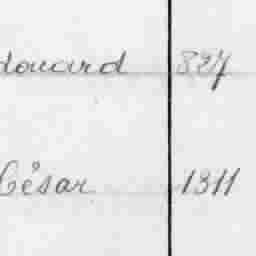 douard 827
César 1311